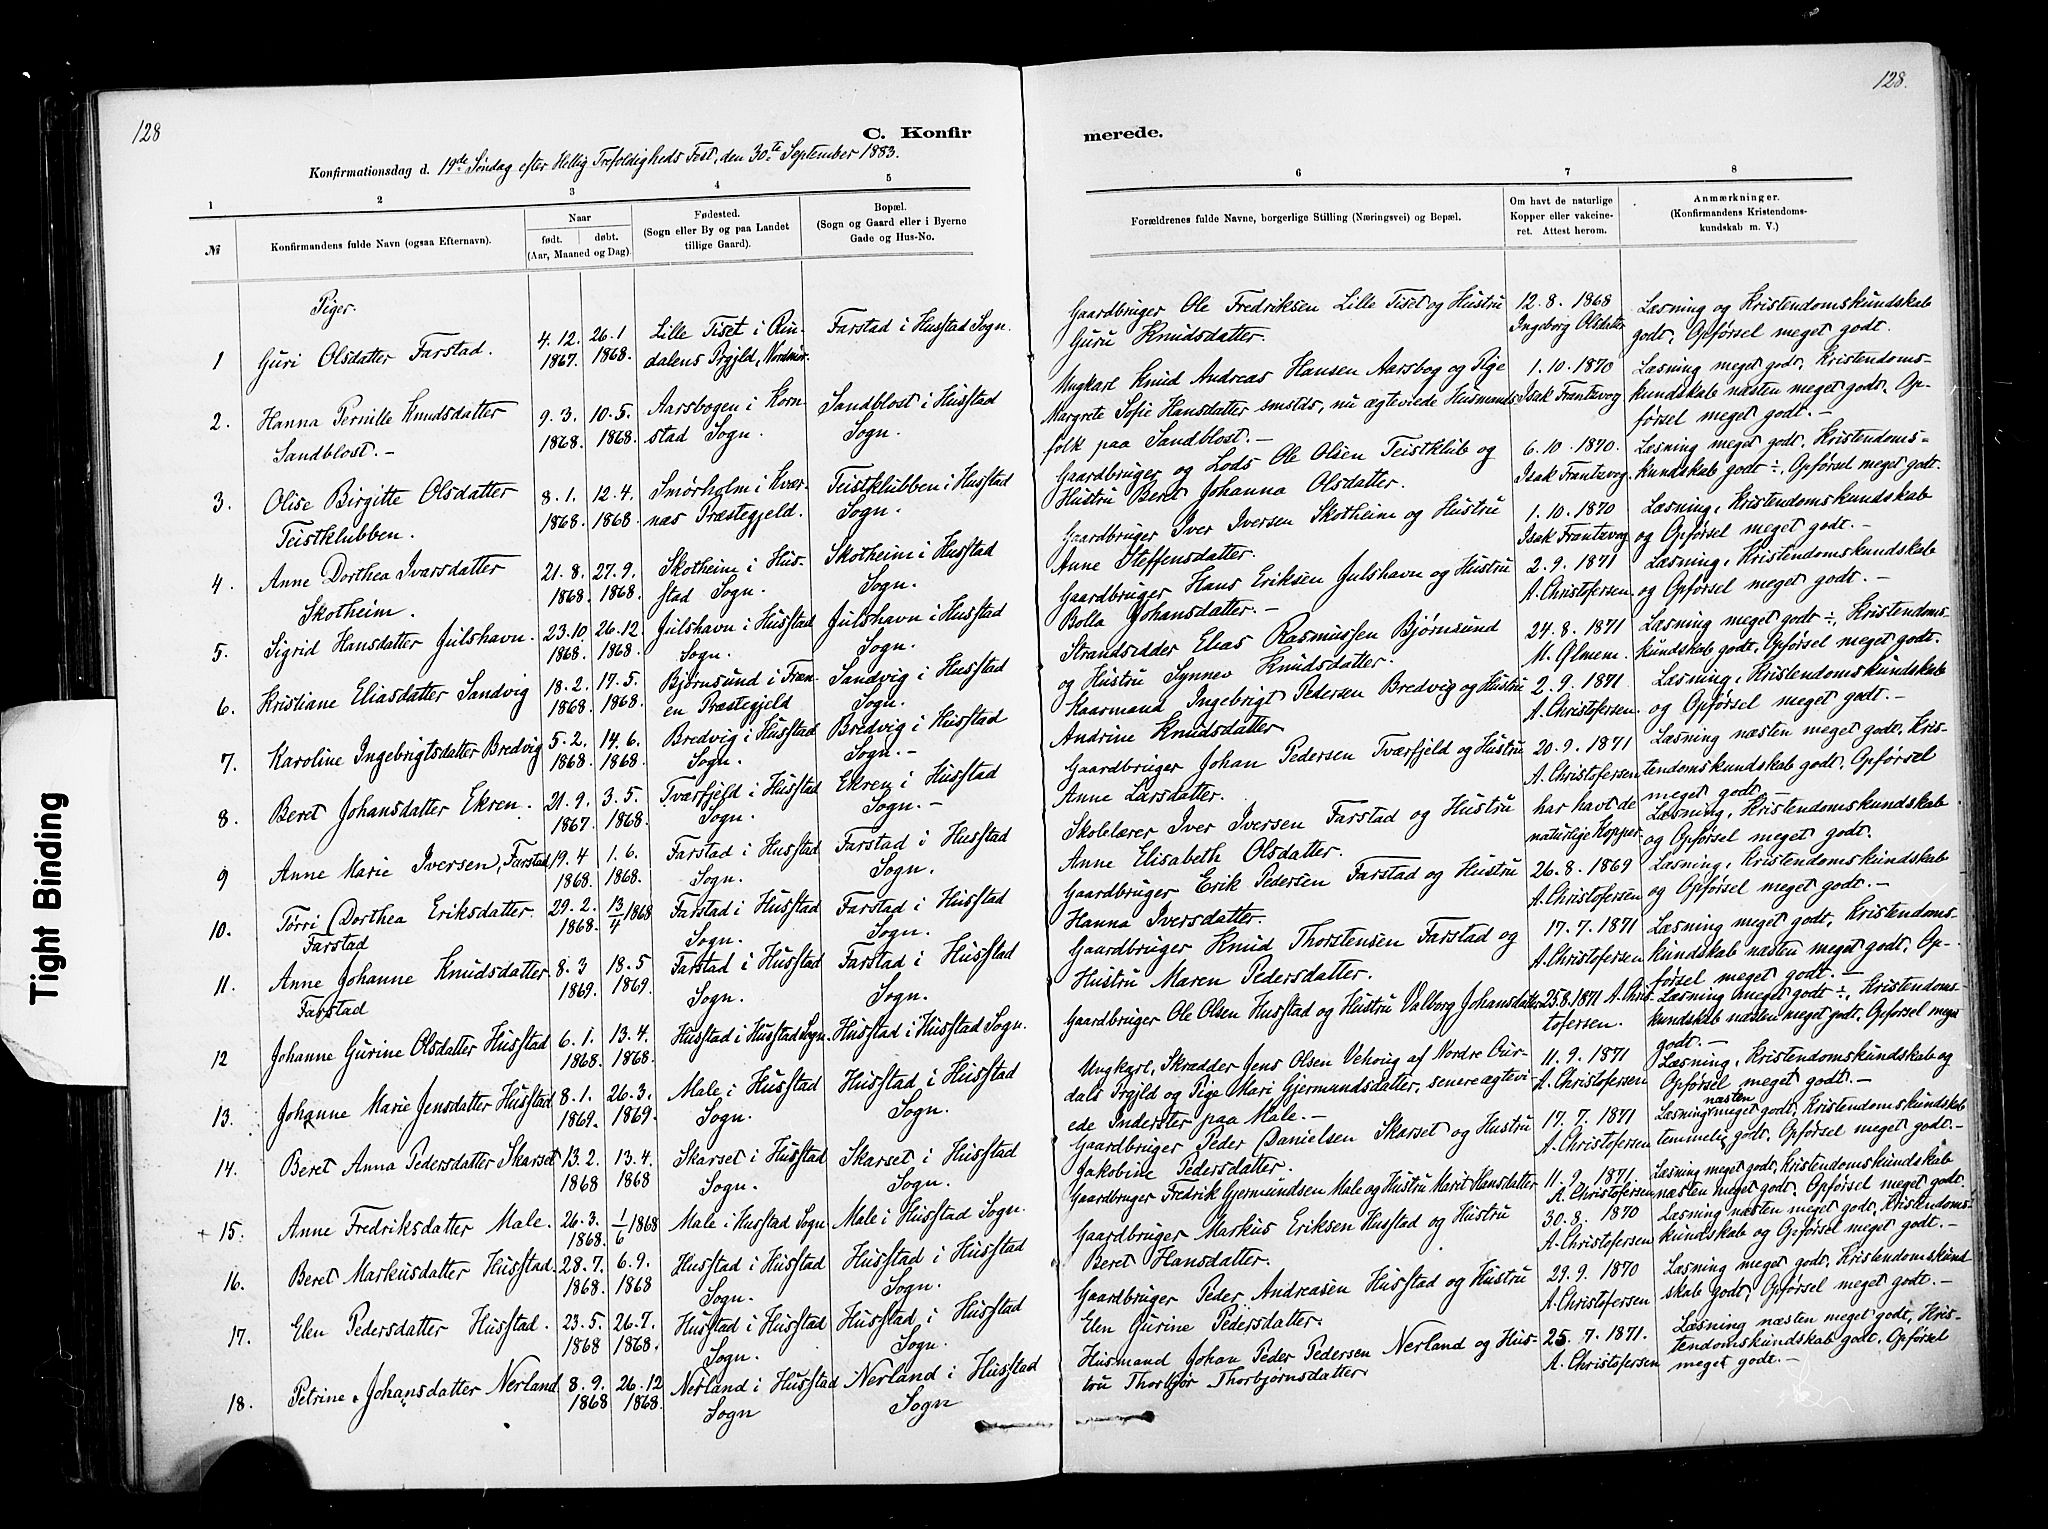 128
128.
C. Konfir
merede.
Konfirmationsdag d. 19de Søndag efter Hellig Trefoldigheds Fest, den 30te September 1883.
1 2 3 4 5
6 7 8
№
Konfirmandens fulde Navn (ogsaa Efternavn).
Naar
født. døbt.
(Aar, Maaned og Dag).
Fødested.
(Sogn eller By og paa Landet
tillige Gaard).
Bopæl.
(Sogn og Gaard eller i Byerne
Gade og Hus-No.
Forældrenes fulde Navne, borgerlige Stilling (Næringsvei) og Bopæl.
Om havt de naturlige
Kopper eller vakcine-
ret. Attest herom.
Anmærkninger.
(Konfirmandens Kristendoms-
kundskab m. V.)
Piger.
1 Guri Olsdatter Farstad. 4.12. 26.1 Lille Tiset i Rin- Farstad i Husstad Sogn.
1867. 1868. dalens Prgjld, Nordmør.
2. Hanna Pernille Knudsdatter 9.3. 10.5. Aarsbogen i Korn- Sandblost i Husstad
Sandblost.- 1868. 1868. stad Sogn. Sogn.
3. Olise Birgitte Olsdatter 8.1. 12.4. Smørholm i Kvær- Teistklubben i Husstad
Teistklubben. 1868. 1868. næs Præstegjeld. Sogn.
4. Anne Dorthea Ivarsdatter 21.8. 27.9. Skotheim i Hus- Skotheim i Husstad
Skotheim. 1868. 1868. stad Sogn. Sogn.
5. Sigrid Hansdatter Julshavn. 23.10. 26.12. Julshavn i Husstad Julshavn i Husstad
1868. 1868. Sogn. Sogn.
6. Kristiane Eliasdatter Sandvig 18.2. 17.5. Bjørnsund i Fræn- Sandvig i Husstad
1868. 1868. en Præstegjeld Sogn.
7. Karoline Ingebrigtsdatter Bredvig 5.2. 14.6. Bredvig i Husstad Bredvig i Husstad
1868. 1868. Sogn. Sogn.-
8. Beret Johansdatter Ekren. 21.9. 3.5. Tværfjeld i Husstad Ekren i Husstad
1867. 1868. Sogn. Sogn.-
9 Anne Marie Iversen, Farstad 19.4 1.6. Farstad i Husstad Farstad i Husstad
1868. 1868. Sogn. Sogn.
10. Tørri Dorthea Eriksdatter. 29.2. 13/4 1868 Farstad i Husstad Farstad i Husstad
Farstad 1868. Sogn. Sogn.
11. Anne Johanne Knudsdatter 8.3 18.5 Farstad i Husstad Farstad i Husstad
Farstad 1869. 1869. Sogn. Sogn.
12 Johanne Gurine Olsdatter Husstad 6.1. 13.4. Husstad i Husstad Sogn. Husstad i Husstad Sogn.
1868. 1868.
13. Johanne Marie Jensdatter Husstad 8.1. 26.3. Male i Husstad Husstad i Husstad
1869. 1869. Sogn. Sogn.
14. Beret Anna Pedersdatter Skarset 13.2. 13.4. Skarset i Husstad Skarset i Husstad
1868 1868 Sogn. Sogn.
+ 15. Anne Fredriksdatter Male. 26.3. 1/6 1868 Male i Husstad Sogn Male i Husstad Sogn.
1868.
16. Beret Markusdatter Husstad. 28.7. 6.9. Husstad i Husstad Husstad i Husstad
1868. 1868 Sogn. Sogn.
17. Elen Pedersdatter Husstad. 23.5. 26.7. Husstad i Husstad Husstad i Husstad
1868 1868. Sogn. Sogn.
18. Petrine Johansdatter Nerland 8.9. 26.12 Nerland i Husstad Nerland i Husstad
1868 1868. Sogn Sogn
Gaardbruger Ole Fredriksen Lille Tiset og Hustru 12.8.1868 Læsning og Kristendomskundskab
Guru Knudsdatter. Ingeborg Olsdatter godt, Opførsel meget godt.
Ungkarl Knud Andreas Hansen Aarsbog og Pige 1.10.1870 Læsning meget godt, Kristendoms-
Margrete Sofie Hansdatter smstds, nu ægteviede Husmands Isak Frantzvog kundskab næsten meget godt, Op-
folk paa Sandblost.- førsel meget godt.-
Gaardbruger og Lods Ole Olsen Teistklub og 6.10 1870. Læsning meget godt, Kristendoms-
Hustru Beret Johanna Olsdatter. Isak Frantzvog. kundskab godt ÷, Opførsel meget godt.
Gaardbruger Iver Iversen Skotheim og Hustru 1.10.1870 Læsning, Kristendomskundskab
Anne Steffensdatter. Isak Frantzvog og Opførsel meget godt.-
Gaardbruger Hans Eriksen Julshavn og Hustru 2.9.1871 Læsning, Kristendomskundskab
Bolla Johansdatter.- A. Christofersen. og Opførsel meget godt.-
Strandsidder Elias Rasmussen Bjørnsund 24.8.1871 Læsning meget godt ÷, Kristendoms-
og Hustru Synnev Knudsdatter. M. Gjmem. kundskab godt, Opførsel meget godt.
Kaarmand Ingebrigt Pedersen Bredvig og Hustru 2.9.1871 Læsning, Kristendomskundskab
Andrine Knudsdatter A. Christofersen. og Opførsel meget godt.-
Gaardbruger Johan Pedersen Tværfjeld og Hustru 20.9.1871 Læsning næsten meget godt, Kris-
Anne Larsdatter. A. Christofersen tendomskundskab godt, Opførsel
meget godt.-
Skolelærer Iver Iversen Farstad og Hustru har havt de Læsning, Kristendomskundskab
Anne Elisabeth Olsdatter. naturlige Kopper. og Opførsel meget godt.
Gaardbruger Erik Pedersen Farstad og Hustru 26.8.1869 Læsning, Kristendomskundskab
Hanna Iversdatter. A. Christofersen og Opførsel meget godt.-
Gaardbruger Knud Thorstensen Farstad og 17.7.1871 Læsning meget godt, Kristendoms-
Hustru Maren Pedersdatter. A. Christofersen. kundskab næsten meget godt, Op-
førsel meget godt.-
Gaardbruger Ole Olsen Husstad og Hustru Valborg Johansdatter 25.8.1871 A. Chris- Læsning meget godt ÷, Kristendoms-
tofersen. kundskab næsten meget godt, Opførsel meget
godt.-
Ungkarl, Skrædder Jens Olsen Vehvig af Nordre Aur- 11.9.1871 Læsning, Kristendomskundskab og
dals Prgjld og Pige Mari Gjermundsdatter, senere ægtevi- A. Christofersen Opførsel meget godt.-
ede Inderster paa Male.-
Gaardbruger Peder Danielsen Skarset og Hustru 17.7.1871 Læsning næsten meget godt, Kristendomskundskab
Jakobine Pedersdatter. A. Christofersen temmelig godt, Opførsel meget godt.-
Gaardbruger Fredrik Gjermundsen Male og Hustru Marit Hansdatter 11.9.1871. Læsning meget godt, Kristendomskundskab
A. Christofersen næsten meget godt, Opførsel meget godt.
Gaardbruger Markus Eriksen Husstad og Hustru 30.8.1870 Læsning næsten meget godt, Kristendoms-
Beret Hansdatter. A. Christofersen kundskab og Opførsel meget godt.-
Gaardbruger Peder Andreasen Husstad og Hustru 29.9.1870 Læsning meget godt, Kristendomskund
Elen Gurine Pedersdatter. A. Christofersen skab godt, Opførsel meget godt.-
Husmand Johan Peder Pedersen Nerland og Hus- 25.7.1871. Læsning næsten meget godt, Kris-
tru Thorbjør Thorbjørnsdatter. A. Christofersen tendomskundskab godt, Opførsel
meget godt.-
Tight Binding